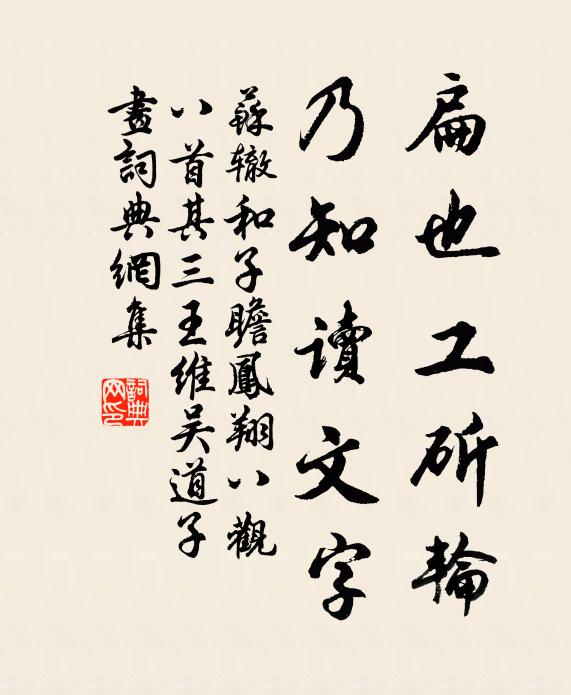 扁也工斫輪
乃知讀文字
蘇轍和子瞻鳳翔八觀
八首其三王維吴道子
畫詞典網集
詞典网印